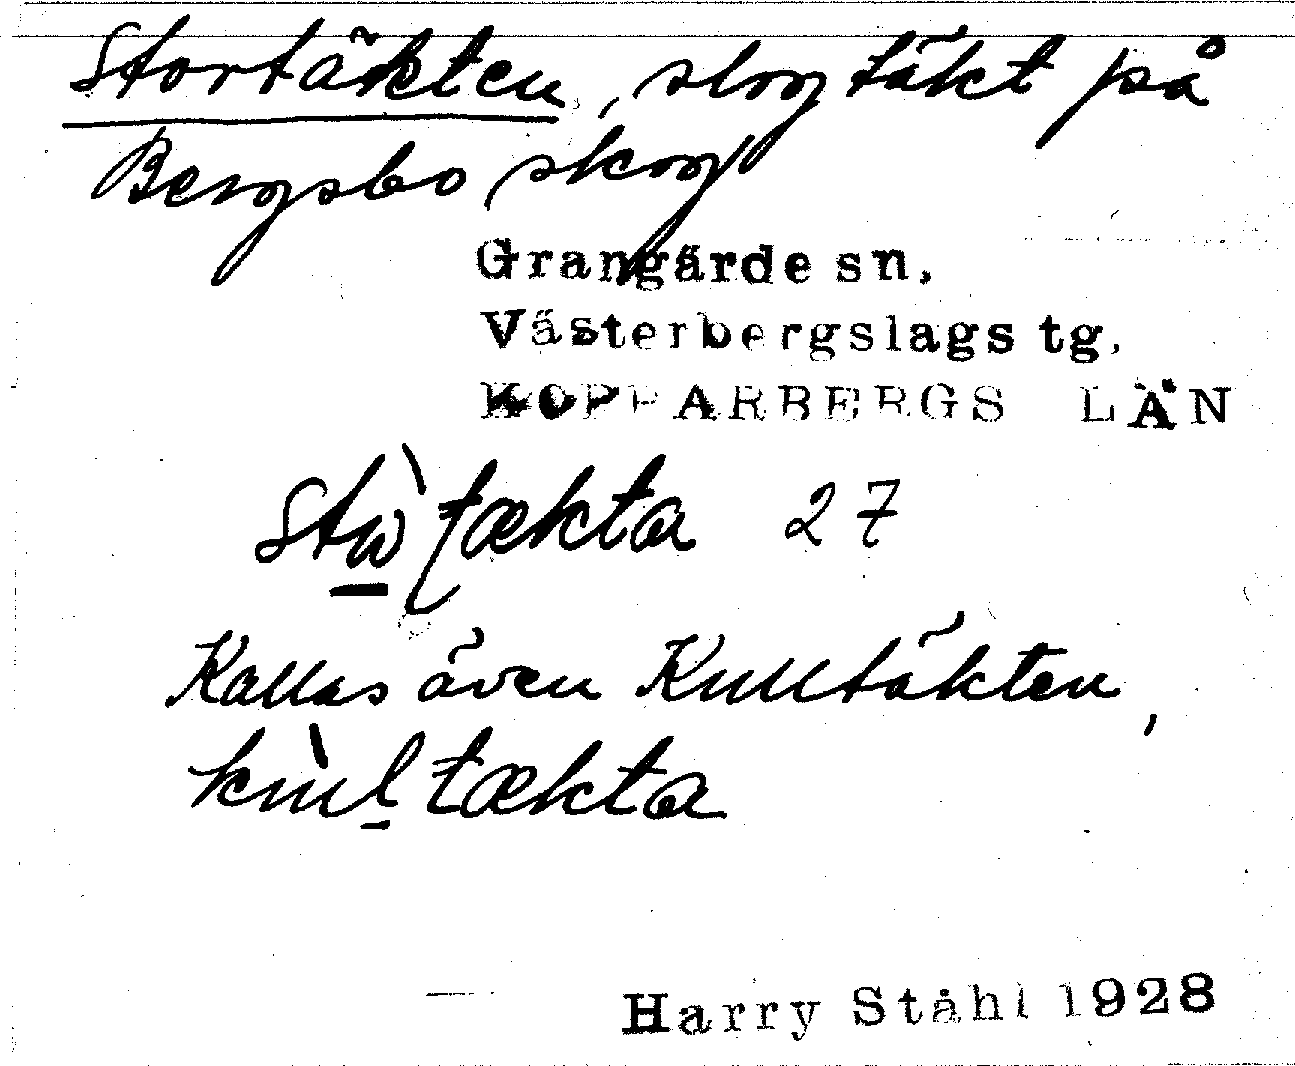 Stortäkten, slogtäkt på
Bergsbo skog
Grangärde sn.
Västerbergslags tg.
KOPPARBERGS LÄN
27
Kallas även Kulltäkten,
Harry Ståhl 1928